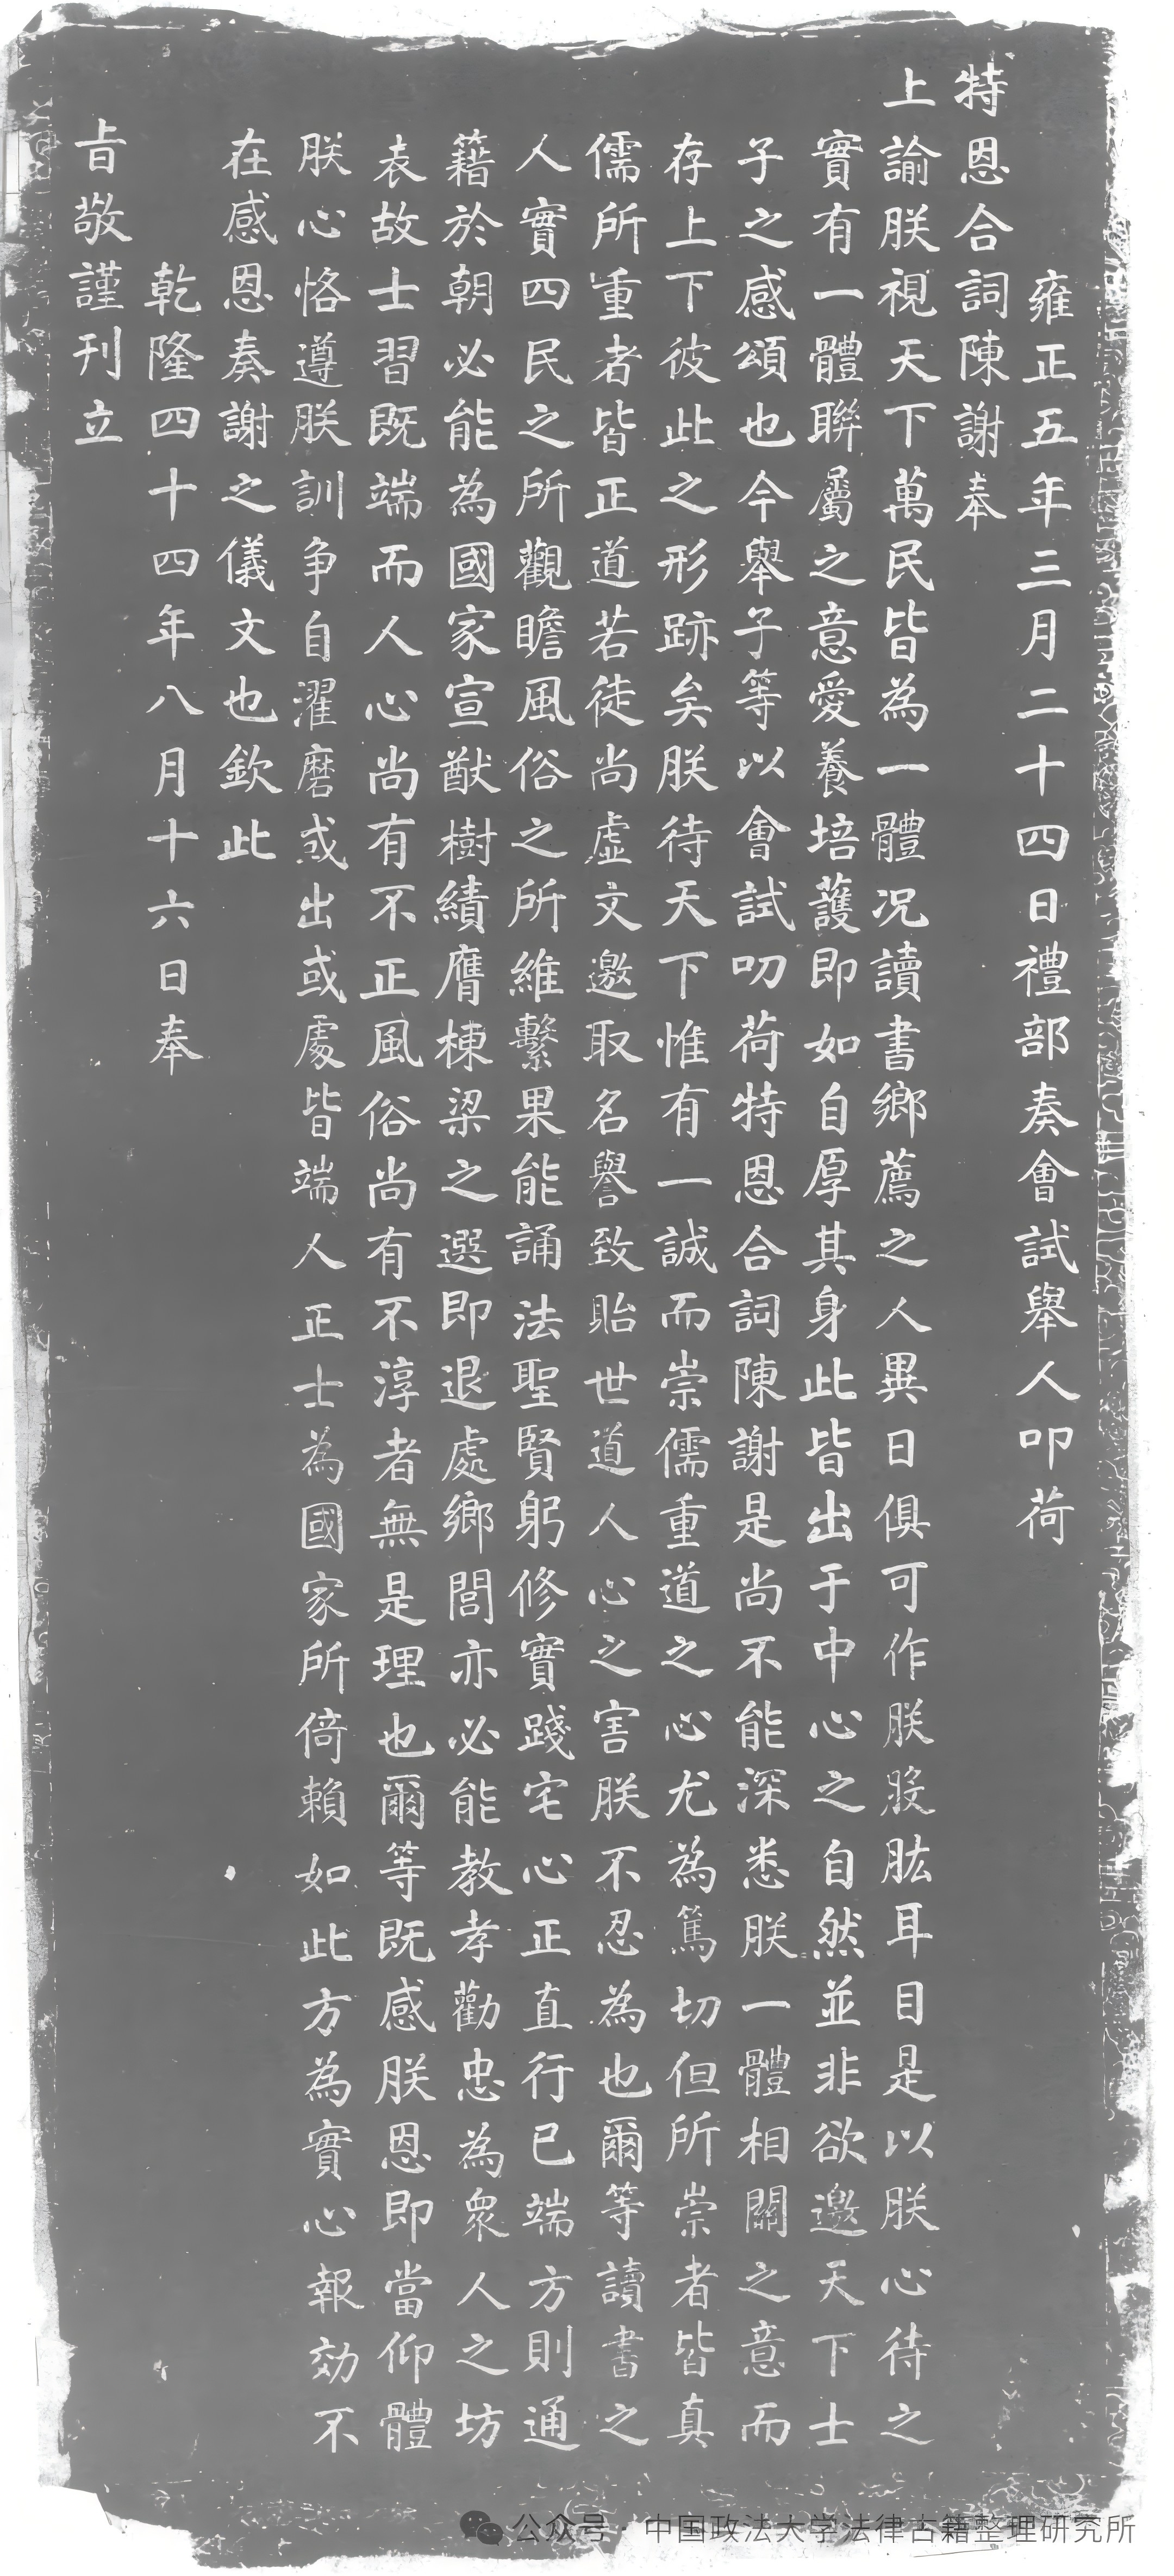 雍正五年三月二十四日禮部奏會試舉人叩荷
特恩合詞陳謝奉
上諭朕視天下萬民皆為一體況讀書鄉薦之人異日俱可作朕股肱耳目是以朕心待之
實有一體聯屬之意愛養培護即如自厚其身此皆出于中心之自然並非欲邀天下士
子之感頌也今舉子等以會試叨荷特恩合詞陳謝是尚不能深悉朕一體相關之意而
存上下彼此之形跡矣朕待天下惟有一誠而崇儒重道之心尤為篤切但所崇者皆真
儒所重者皆正道若徒尚虛文邀取名譽致貽世道人心之害朕不忍為也爾等讀書之
人實四民之所觀瞻風俗之所維繫果能誦法聖賢躬修實踐宅心正直行已端方則通
籍於朝必能為國家宣猷樹績膺棟梁之選即退處鄉閭亦必能教孝勸忠為眾人之坊
表故士習既端而人心尚有不正風俗尚有不淳者無是理也爾等既感朕恩即當仰體
朕心恪遵朕訓爭自濯磨或出或處皆端人正士為國家所倚賴如此方為實心報効不
在感恩奏謝之儀文也欽此
乾隆四十四年八月十六日奉
旨敬謹刊立
公众号·中国政法大学法律古籍整理研究所